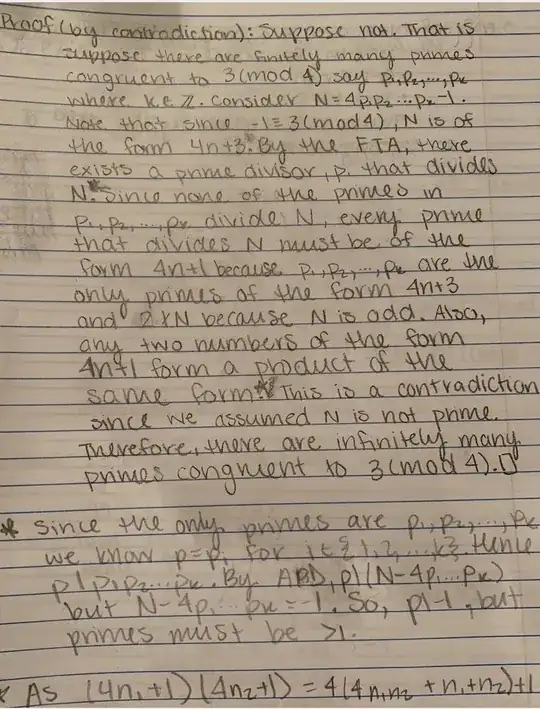 Proof (by contradiction): Suppose not. That is
suppose there are finitely many primes
congruent to 3(mod 4) say p₁,p₂,...,pₖ
where k∈ℤ. Consider N=4p₁p₂...pₖ-1.
Note that since -1≡3(mod4), N is of
the form 4n+3. By the FTA, there
exists a prime divisor, p, that divides
N.* Since none of the primes in
p₁,p₂,...,pₖ divide N, every prime
that divides N must be of the
form 4n+1 because p₁,p₂,...,pₖ are the
only primes of the form 4n+3
and 2∤N because N is odd. Also,
any two numbers of the form
4n+1 form a product of the
same form.* This is a contradiction
since we assumed N is not prime.
Therefore, there are infinitely many
primes congruent to 3(mod 4).□
* Since the only primes are p₁,p₂,...,pₖ
we know p=pᵢ for i∈{1,2,...,k}. Hence
p|p₁p₂...pₖ. By ABD, p|(N-4p₁...pₖ)
but N-4p₁...pₖ=-1. So, p|-1, but
primes must be >1.
* As (4n₁+1)(4n₂+1)=4(4n₁n₂+n₁+n₂)+1